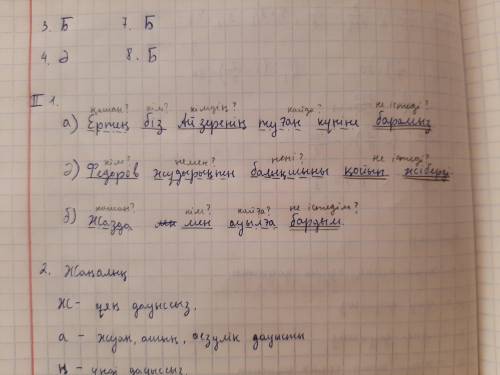 3. Б 7. Б
4. Ә 8. Б
қашан? кім? кімдің? қайда? не істедің?
II 1. а) Ертең біз Айзеренің туған күніне барамыз
кім? немен? нені? не істеді?
ә) Федоров жүдеріқпен балықшыны қойып жіберді.
қашан? кім? қайда? не істедім?
б) Жазда мен ауылға бардым.
2. Жаңалық
Ж - ұяң дауыссыз,
а - жуан, ашық, езулік дауысты
ң - үнді дауыссыз,